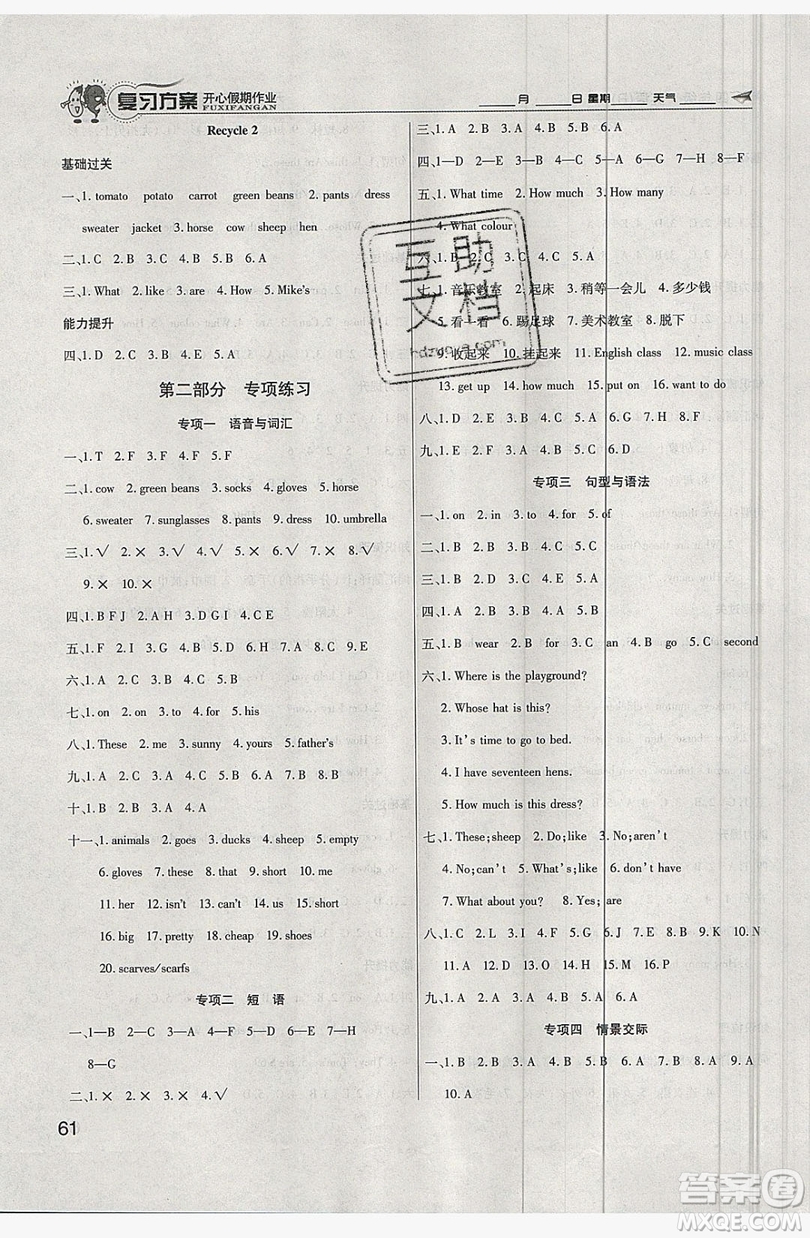 复习方案 开心假期作业
FUXIFANGAN
月 日 星期 天气
Recycle 2
基础过关
一、1. tomato potato carrot green beans 2. pants dress
sweater jacket 3. horse cow sheep hen
二、1. C 2. B 3. C 4. A 5. C
三、1. What 2. like 3. are 4. How 5. Mike's
能力提升
四、1. D 2. C 3. B 4. A 5. A
第二部分 专项练习
专项一 语音与词汇
一、1. T 2. F 3. F 4. F 5. F
二、1. cow 2. green 3. socks 4. gloves 5. horse
6. sweater 7. sunglasses 8. pants 9. dress 10. umbrella
三、1. √ 2. × 3. √ 4. √ 5. × 6. √ 7. × 8. √
9. × 10. ×
四、1. B F J 2. A H 3. D G I 4. C E
五、1. F 2. I 3. D 4. A 5. H 6. B 7. G 8. C 9. E
六、1. A 2. C 3. B 4. C 5. A
七、1. on 2. on 3. to 4. for 5. his
八、1. These 2. me 3. sunny 4. yours 5. father's
九、1. A 2. C 3. A 4. B 5. A 6. A 7. B 8. B
十、1. A 2. B 3. A 4. A
十一、1. animals 2. goes 3. ducks 4. sheep 5. empty
6. gloves 7. these 8. that 9. short 10. me
11. her 12. isn't 13. can't 14. us 15. short
16. big 17. pretty 18. cheap 19. shoes
20. scarves/scarfs
专项二 短 语
一、1—B 2—C 3—A 4—F 5—D 6—E 7—H
8—G
二、1. × 2. × 3. × 4. √
三、1. A 2. B 3. A 4. A 5. B
四、1—D 2—E 3—A 4—G 5—B 6—C 7—H 8—F
五、1. What time 2. How much 3. How many
4. What colour
六、1. B 2. C 3. C 4. A 5. C
七、1. 音乐教室 2. 起床 3. 稍等一会儿 4. 多少钱
5. 看一看 6. 踢足球 7. 美术教室 8. 脱下
9. 收起来 10. 挂起来 11. English class 12. music class
13. get up 14. have lunch 15. put on 16. want to do
八、1. D 2. F 3. B 4. A 5. C 6. E 7. G 8. H
九、1. E 2. B 3. C 4. A 5. D
专项三 句型与语法
一、1. on 2. in 3. to 4. for 5. of
二、1. B 2. B 3. C 4. A 5. B
三、1. D 2. A 3. B 4. E 5. C
四、1. A 2. B 3. A 4. A 5. B
五、1. B wear 2. B for 3. C are 4. B go 5. C second
六、1. Where is the playground?
2. Whose hat is this?
3. It's time to go to bed.
4. I have seventeen hens.
5. How much is this dress?
七、1. These;sheep 2. Do 3. No;aren't
4. No;can't 5. What's;like 6. don't have
7. What about you? 8. Yes;are
八、1. C 2. L 3. I 4. K 5. G 6. J 7. F 8. H 9. B 10. N
11. A 12. O 13. E 14. M 15. D
九、1. A 2. C 3. C 4. A 5. A
专项四 情景交际
一、1. B 2. B 3. C 4. B 5. B 6. B 7. C 8. B 9. A
10. A
互助
文档
hdzuoye.com
61
答案圈
MXQE.COM